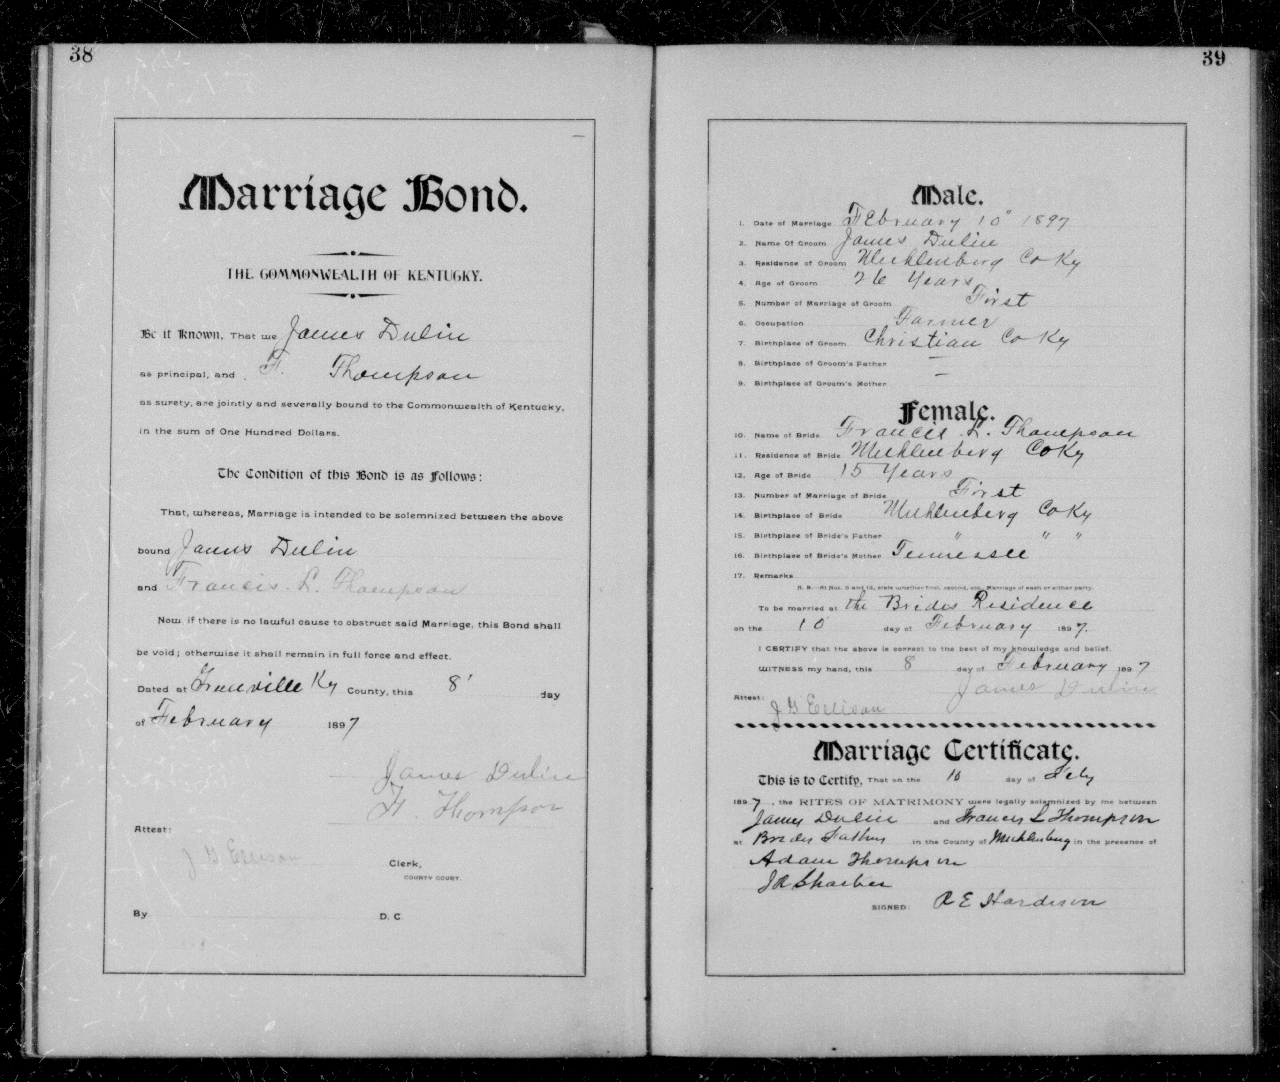 38
Marriage Bond.
THE COMMONWEALTH OF KENTUCKY.
Be it Known, That we James Dulin
as principal, and F. Thompson
as surety, are jointly and severally bound to the Commonwealth of Kentucky,
in the sum of One Hundred Dollars.
The Condition of this Bond is as Follows:
That, whereas, Marriage is intended to be solemnized between the above
bound James Dulin
and Francis L. Thompson
Now, if there is no lawful cause to obstruct said Marriage, this Bond shall
be void; otherwise it shall remain in full force and effect.
Dated at Greenville Ky County, this 8' day
of February 1897
James Dulin
F. Thompson
Attest:
J G Ellison Clerk,
COUNTY COURT.
By D. C.
39
Male.
1. Date of Marriage February 10" 1897
2. Name Of Groom James Dulin
3. Residence of Groom Muhlenberg Co Ky
4. Age of Groom 26 Years
5. Number of Marriage of Groom First
6. Occupation Farmer
7. Birthplace of Groom Christian Co Ky
8. Birthplace of Groom's Father —
9. Birthplace of Groom's Mother —
Female.
10. Name of Bride Francis L. Thompson
11. Residence of Bride Muhlenberg Co Ky
12. Age of Bride 15 Years
13. Number of Marriage of Bride First
14. Birthplace of Bride Muhlenberg Co Ky
15. Birthplace of Bride's Father " " "
16. Birthplace of Bride's Mother Tennessee
17. Remarks
N. B.—At Nos. 5 and 13, state whether first, second, etc., Marriage of each or either party.
To be married at the Brides Residence
on the 10 day of February 1897.
I CERTIFY that the above is correct to the best of my knowledge and belief.
WITNESS my hand, this 8 day of February 1897
James Dulin
Attest:
J G Ellison
Marriage Certificate.
This is to Certify, That on the 10 day of Feby
1897, the RITES OF MATRIMONY were legally solemnized by me between
James Dulin and Francis L Thompson
at Brides Fathers in the County of Muhlenburg in the presence of
Adam Thompson
J R
SIGNED: R E Hardison